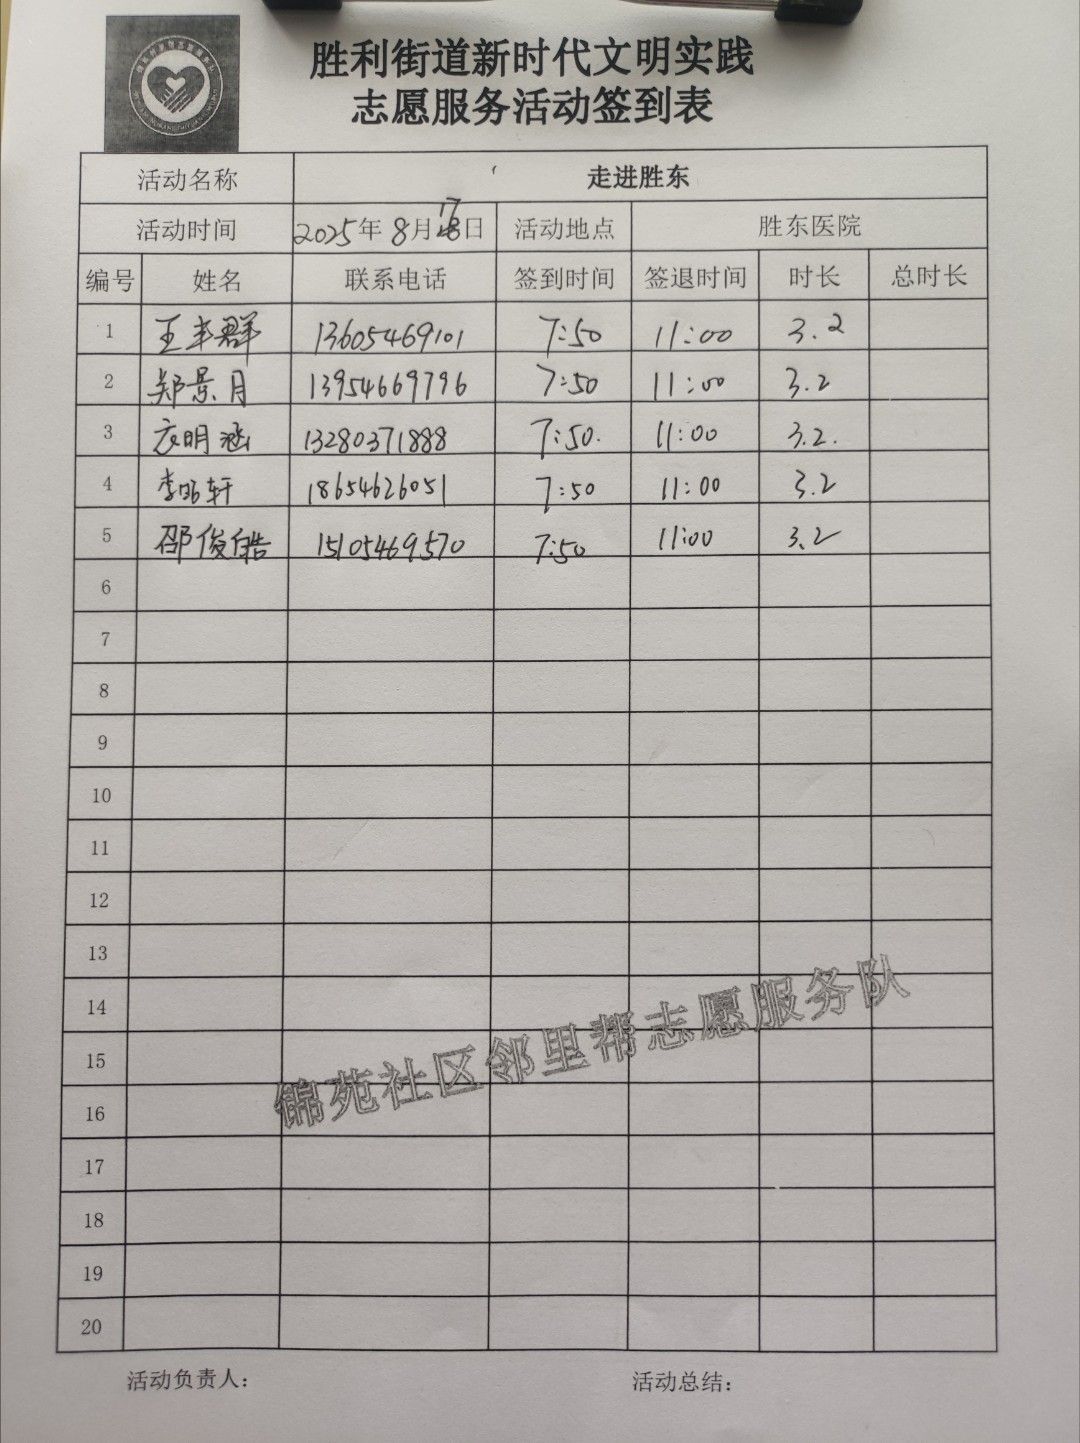 胜利街道新时代文明实践
志愿服务活动签到表
活动名称 走进胜东
活动时间 2025年8月17日 活动地点 胜东医院
编号 姓名 联系电话 签到时间 签退时间 时长 总时长
1 王丰群 13605469101 7:50 11:00 3.2
2 郑景月 13954669796 7:50 11:00 3.2
3 明涵 13280371888 7:50. 11:00 3.2.
4 李昭轩 18654626051 7:50 11:00 3.2
5 邵俊皓 15105469570 7:50 11:00 3.2
6
7
8
9
10
11
12
13
14
15
16
17
18
19
20
锦苑社区邻里帮志愿服务队
活动负责人： 活动总结：